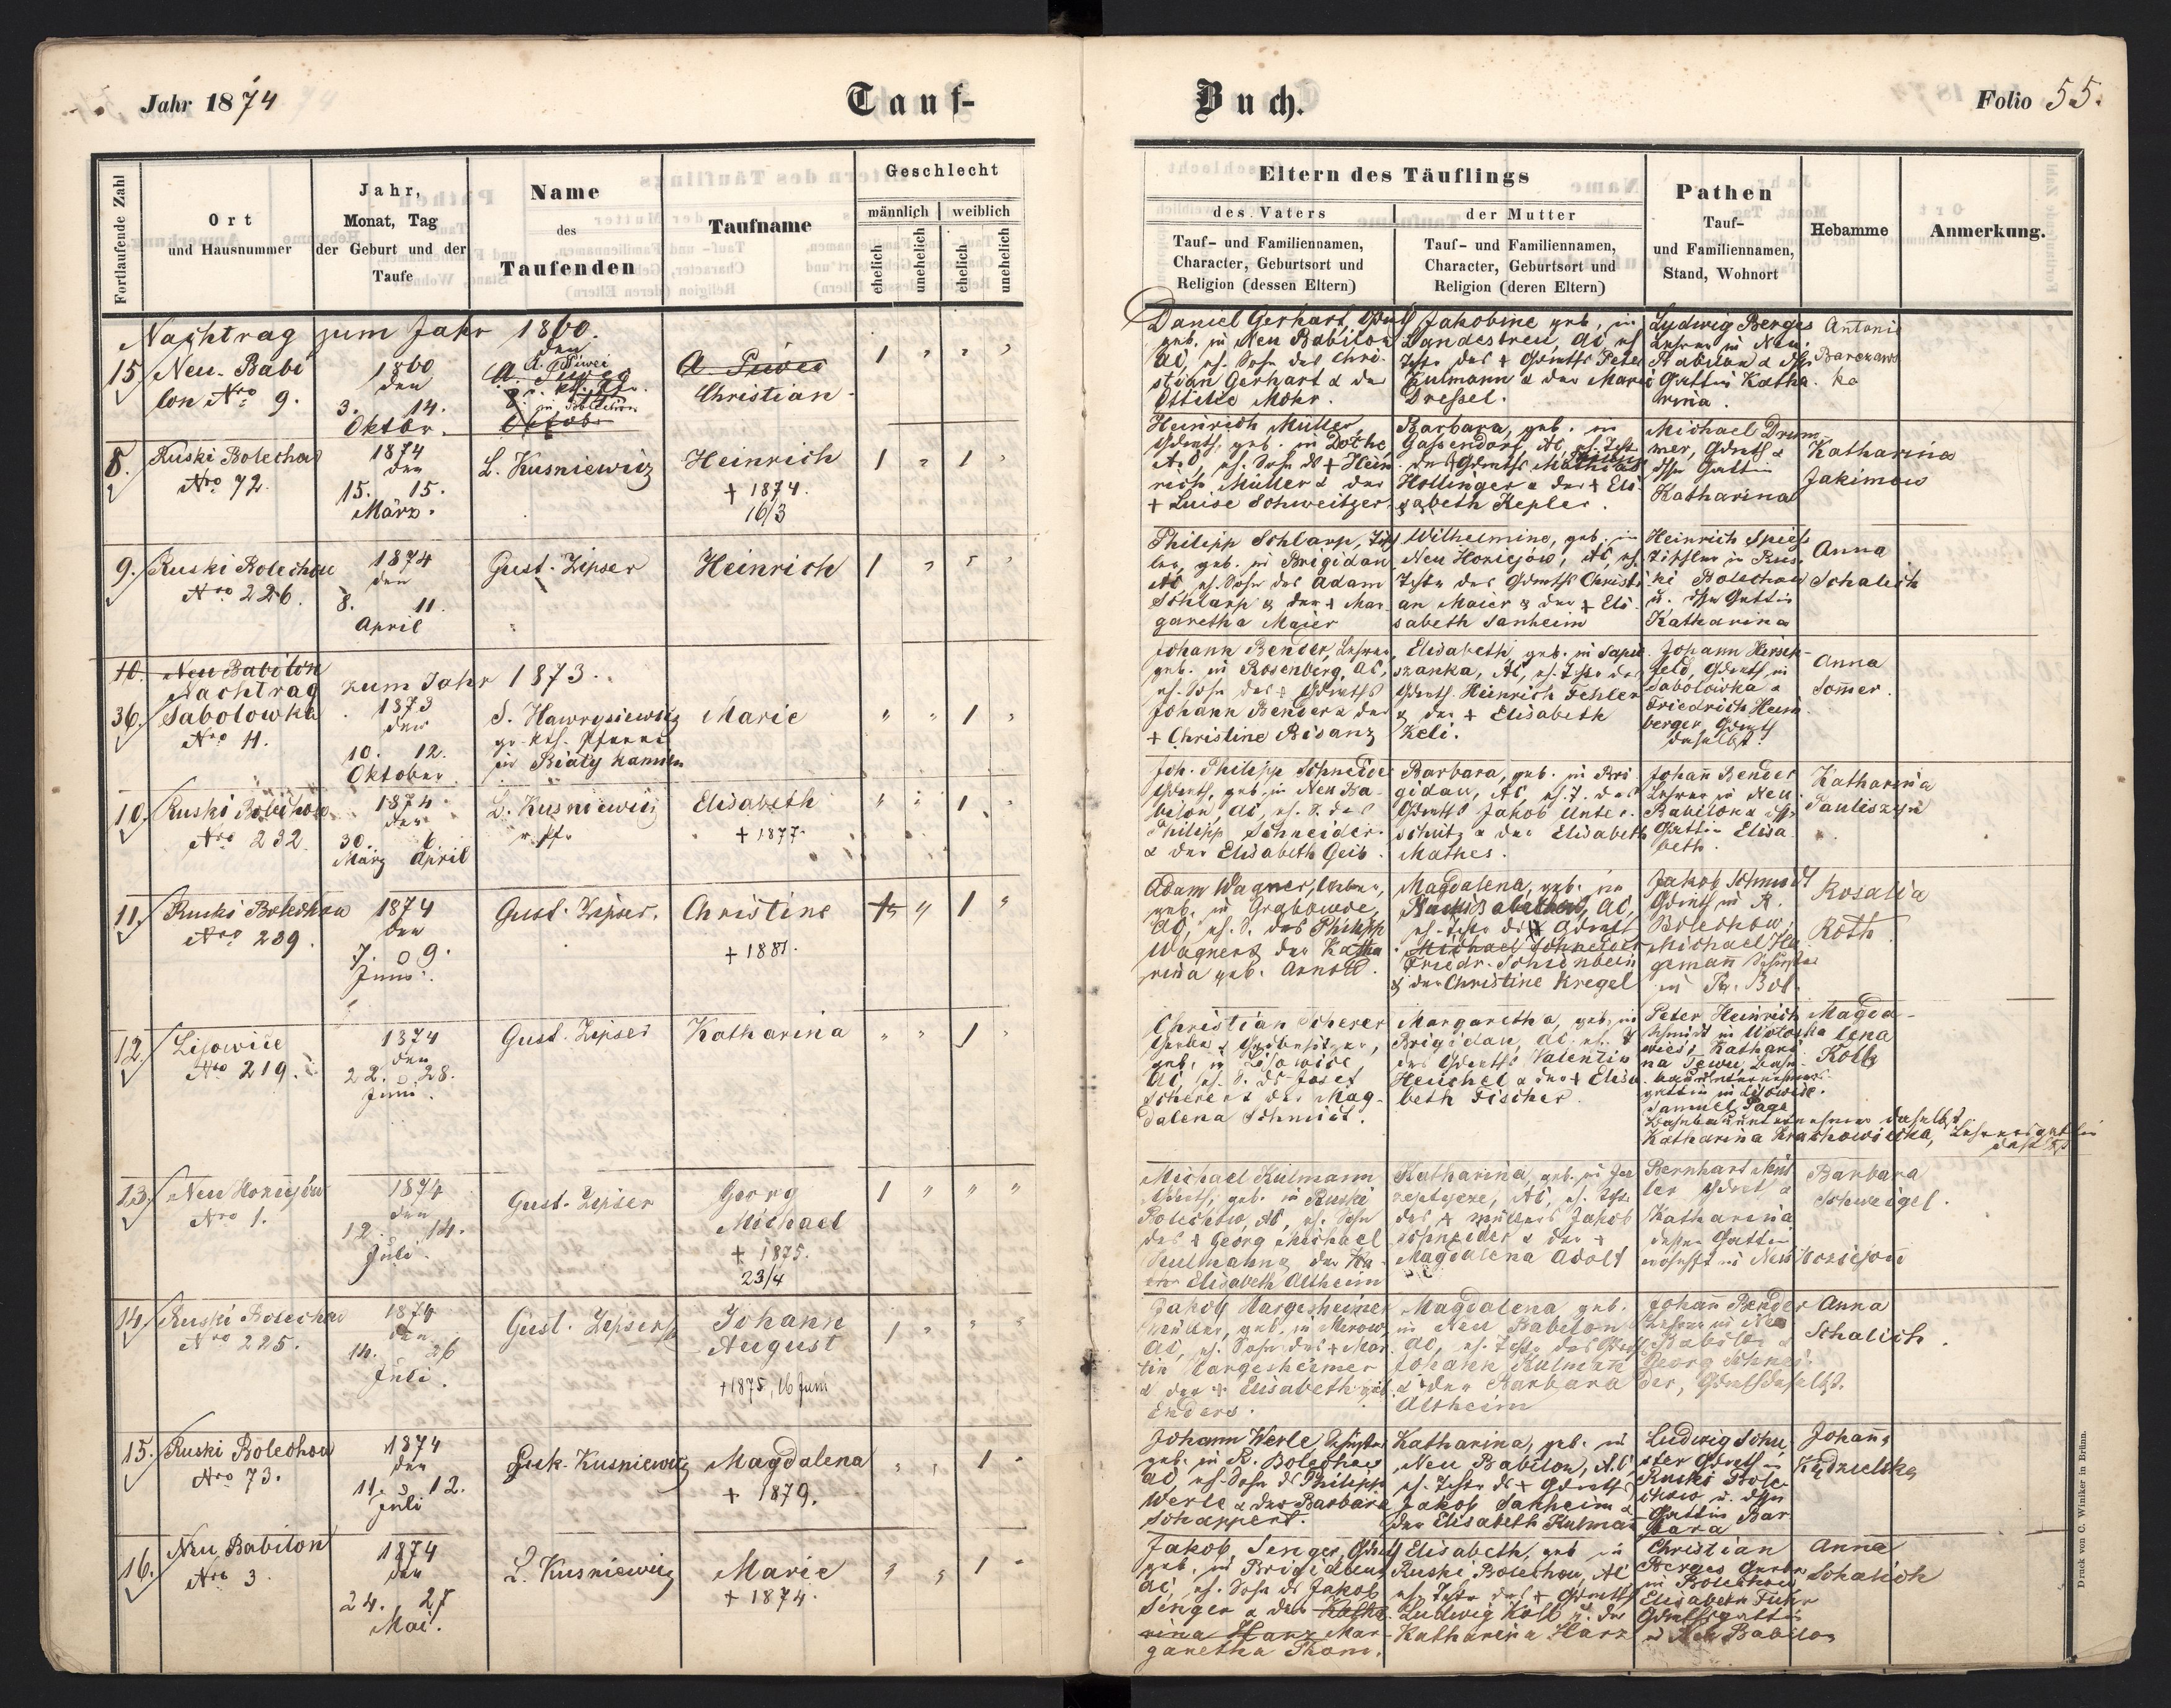 Jahr 1874
Tauf-
Buch.
Folio 55.
Fortlaufende Zahl
Ort
und Hausnummer
Jahr,
Monat, Tag
der Geburt und der
Taufe
Name
des
Taufenden
Taufname
Geschlecht
männlich
weiblich
ehelich
unehelich
ehelich
unehelich
Eltern des Täuflings
des Vaters
Tauf- und Familiennamen,
Character, Geburtsort und
Religion (dessen Eltern)
der Mutter
Tauf- und Familiennamen,
Character, Geburtsort und
Religion (deren Eltern)
Pathen
Tauf-
und Familiennamen,
Stand, Wohnort
Hebamme
Anmerkung.
Nachtrag zum Jahr 1860.
15. Neu-Babi
lon Nro 9.
1860
den
3. 14.
Oktbr.
A. Piwei
Christian
1 " " "
Daniel Gerhart,
geb. in Neu Babilon
AC, eh. Sohn des Chri-
stian Gerhart & der
Ottilie Mohr.
Jakobine geb. in
Landestreu, AC eh
Tchtr des + Peter
Kulmann & der Marie
Dressel.
Ludwig Berges
Lehrer in Neu-
Babilon & dssn
Gattin Katha-
rina.
Antonie
Barczaws
ka
8. Ruski Bolechow
Nro 72.
1874
den
15. 15.
März.
L. Kusniewicz
Heinrich
+ 1874.
16/3
1 " 1 "
Heinrich Müller,
geb. in
AC, eh. Sohn ds + Hein-
rich Müller & der
+ Luise Schweitzer.
Barbara, geb. in
Gassendorf, AC, eh. Tchtr
des Mathias
Hollinger & der + Eli-
sabeth Kepler.
Michael Drum
mer,
dssn Gattin
Katharina
Katharina
Jakimow
9. Ruski Bolechow
Nro 226.
1874
den
8. 11.
April
Gust. Zipser
Heinrich
1 " " "
Philipp Schlarp, Tisch
ler, geb. in Brigidau
AC eh. Sohn des Adam
Schlarp & der + Mar-
garetha Maier
Wilhelmine, geb. in
Neu Hoziejow, AC, eh.
Tchtr des Christi
an Maier & der + Eli-
sabeth Sanheim
Heinrich Spiess
Tischler in Rus-
ki Bolechow
u. dssn Gattin
Katharina
Anna
Schalich
10. Neu Babilon
Nachtrag zum Jahr 1873.
36. Sabolowka
Nro 4.
1873
den
10. 12.
Oktober
S. Hawrysiewicz
gr.-kth. Pfarrer
in Biały kamien
Marie
" " 1 "
Johann Bender, Lehrer
geb. in Rosenberg, AC,
eh. Sohn des +
Johann Bender & der
+ Christine Bisanz
Elisabeth geb. in Sapie
szanka, AC, eh. Tchtr des
Heinrich Fehler
& der + Elisabeth
Keli.
Johann Hirsch-
feld, in
Sabolowka &
Friedrich Heim
berger
daselbst.
Anna
Somer.
10. Ruski Bolechow
Nro 232
1874
den
30. 6.
März April
L. Kusniewicz
Elisabeth
+ 1877.
" " 1 "
Joh. Philipp Schneider
geb. in Neu Ba-
bilon, AC, eh. S. des
Philipp Schneider
& der Elisabeth Geib.
Barbara, geb. in Bri
gidau, AC eh. T. des
Jakob Unter-
schütz & der Elisabeth
Mathes.
Johann Bender
Lehrer in Neu-
Babilon & dssn
Gattin Elisa-
beth.
Katharina
Pauliszyn
11. Ruski Bolechow
Nro 239.
1874
den
7. 9.
Juni.
Gust. Zipser.
Christine
+ 1881.
" 1 "
Adam Wagner, Weber,
geb. in Grabowce,
AC, eh. S. des Philipp
Wagner & der Katha
rina geb. Arnold.
Magdalena, geb. in
AC,
eh. Tchtr ds
Michael Schneider
Friedr. Schienbein
& der Christine Kregel
Jakob Schmidt
in R.
Bolechow,
Michael Ha
gemann
in R. Bol.
Rosalia
Roth
12. Lisowice
Nro 219.
1874
den
22. 28.
Juni.
Gust. Zipser
Katharina
" " 1 "
Christian Scherer
geb. in Lisowice
AC, eh. S. ds Josef
Scherer & der Mag-
dalena Schmidt.
Margaretha, geb. in
Brigidau, AC, eh. T
des Valentin
Heuchel & der + Elisa-
beth Fischer.
Peter Heinrich
Schmidt in Woloska
wies, Kathari-
na
gattin in Lisowice.
Samuel Page
daselbst
Katharina Krachowicka,
daselbst
Magda-
lena
Kolb
13. Neu Hoziejów
Nro 1.
1874
den
12. 14.
Juli.
Gust. Zipser
Georg
Michael
+ 1875.
23/4
1 " " "
Michael Kulmann
geb. in Ruski
Bolechow, AC, eh. Sohn
des + Georg Michael
Kulmann & der
Elisabeth Altheim
Katharina, geb. in
AC, eh. Tchtr.
des + Müllers Jakob
Schneider & der +
Magdalena Adolf
Bernhart Mül
ler
Katharina
dessen Gattin
wohnhft in Neu Hoziejow
Barbara
Schweigel.
14. Ruski Bolechow
Nro 225.
1874
den
14. 26
Juli.
Gust. Zipser
Johann
August
+ 1875, 16 Juni
1 " " "
Jakob Hargesheimer
Müller, geb. in
AC, eh. Sohn des + Mar
tin Hargesheimer
& der + Elisabeth geb.
Enders.
Magdalena geb.
in Neu Babilon
AC, eh. Tchtr des
Johann Kulmann
& der Barbara
Altheim
Johann Bender
Lehrer in Neu
Babilon &
Georg Schnei-
der, daselbst.
Anna
Schalich.
15. Ruski Bolechow
Nro 73.
1874
den
11. 12.
Juli
Kusniewicz
Magdalena
+ 1879.
" " 1 "
Johann Werle,
geb. in R. Bolechow
AC, eh. Sohn ds Philipp
Werle & der Barbara
Schappert.
Katharina, geb. in
Neu Babilon, AC
eh. Tchtr ds +
Jakob Sanheim &
der Elisabeth Kulman
Ludwig Schu
ster
Ruski Bole-
chow u. dssn
Gattin Bar
bara
Johana
Kędzielska
16. Neu Babilon
Nro 3.
1874
den
24. 27
Mai.
L. Kusniewicz
Marie
+ 1874.
" " 1 "
Jakob Senger,
geb. in Brigidau
AC, eh. Sohn ds Jakob
Senger & der Katha
rina Harz Mar-
garetha Thom.
Elisabeth, geb in
Ruski Bolechow, AC
eh. Tchtr des +
Ludwig Koll u. der
Katharina Harz
Christian
Berges
in Bolechow
Elisabeth Fuhr
in Neu Babilon
Anna
Schalich
Druck von C. Winiker in Brünn.